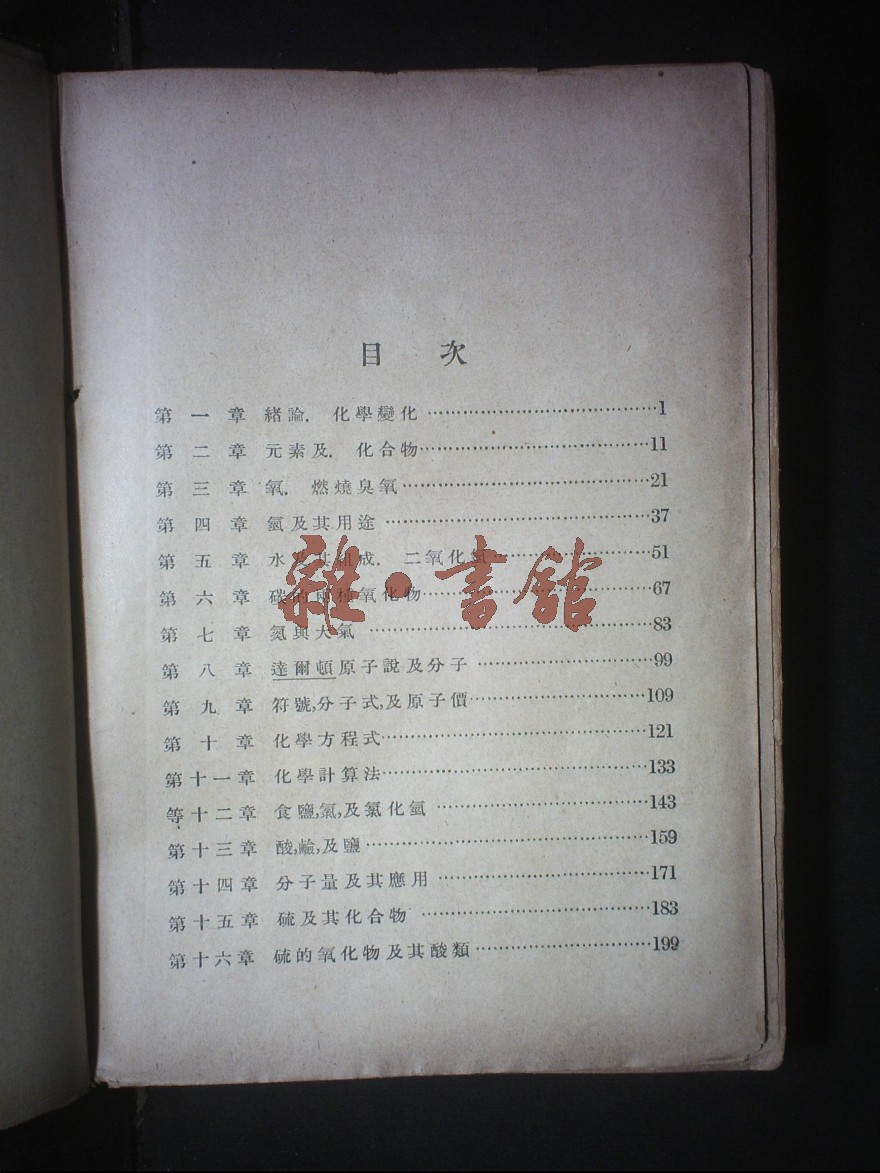 目 次
第一章 緒論. 化學變化 …………………………………1
第二章 元素及. 化合物…………………………………11
第三章 氧. 燃燒臭氧…………………………………21
第四章 氫及其用途 …………………………………37
第五章 水及其組成. 二氧化氫…………………………51
第六章 碳的兩種氧化物…………………………………67
第七章 氮與大氣 …………………………………83
第八章 達爾頓原子說及分子 …………………………99
第九章 符號,分子式,及原子價…………………………109
第十章 化學方程式…………………………………121
第十一章 化學計算法…………………………………133
等十二章 食鹽,氯,及氯化氫 …………………………143
第十三章 酸,鹼,及鹽…………………………………159
第十四章 分子量及其應用 …………………………171
第十五章 硫及其化合物 …………………………183
第十六章 硫的氧化物及其酸類 …………………………199
雜·書館